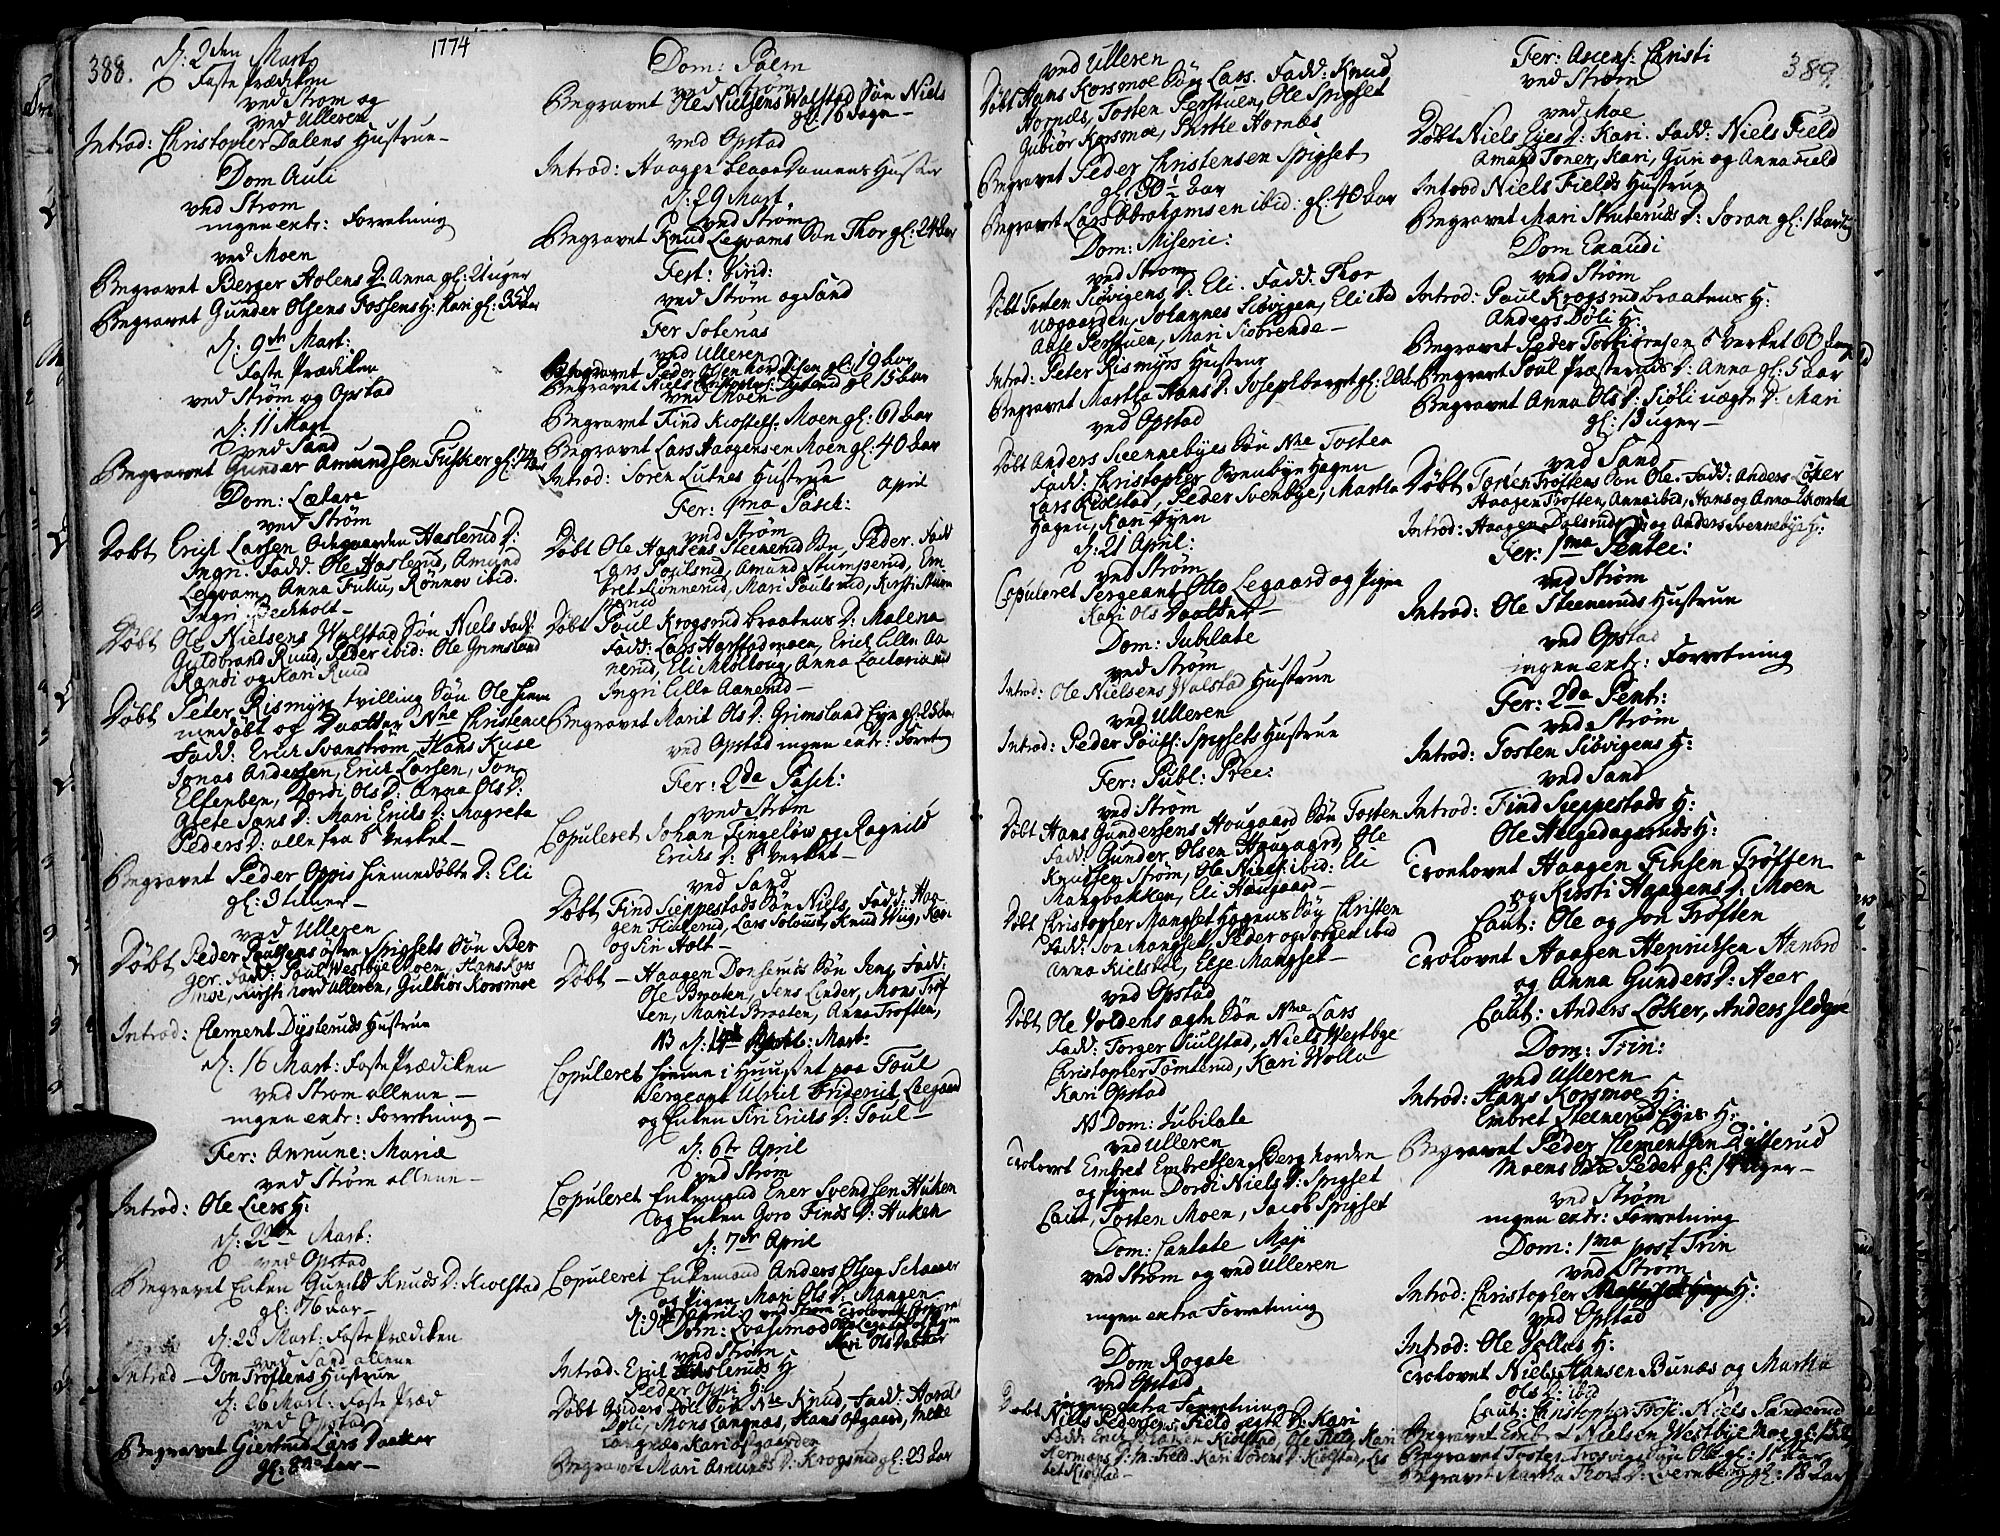 388.
1774
d: 2den Mart
Faste Prædiken
ved Strøm og
ved Ulleren
Introd: Christopher Dalens Hustrue
Dom Auli
ved Strøm
ingen extr: Forretning
ved Moen
Begravet Berger Holens D: Anna gl: 2 uger
Begravet Gunder Olsens Fossens H: Kari gl: 35 aar
d: 9de Mart:
Faste Prædiken
ved Strøm og Opstad
d: 11 Mart
ved Sand
Begravet Gunder Amundsen Fusker gl:
Dom: Lætare
ved Strøm
Døbt Erich Larsen Haslerud D:
Ingri. Fadd. Ole Haslerud, Amund
Legvam, Anna Fuku, Rønnov ibid.
Ingri
Døbt Ole Nielsens Walstad Søn Niels Fadd:
Guldbrand Ruud, Peder ibid: Ole Grimsland
Randi og Kari Ruud
Døbt Peter Rismyrs tvilling Søn Ole hiem
medøbt og Daatter Nne Christence
Fadd: Erich Svanstrøm, Hans Kuse
Jonas Andersen, Erich Larsen, Jon
Elfenben, Dordi Ols D: Anna Ols D:
Agete Jans D: Mari Erichs D: Magreta
Peders D: alle fra S: Verket
Begravet Peder Oppis hiemedøbte D: Eli
gl: 3 timer
ved Ulleren
Døbt Peder Poulsens østre Spigsets Søn Ber
ger. Fadd: Poul Westbye Moen, Hans Kors
moe, Kirsti nord Ulleren, Gulbiør Korsmoe
Introd: Clement Dysteruds Hustrue
d: 16 Mart: Faste Prædiken
ved Strøm allene
ingen extr: Forretning
Fer: Annunc: Mariæ
ved Strøm allene
Introd: Ole Liers H:
d: 22de Mart:
ved Opstad
Begravet Enken Gunild Knuds D: Kiolstad
gl: 76 aar
d: 23 Mart: Faste Prædiken
ved Sand allene
Introd Jon Trøftens Hustrue
d: 26 Mart: Faste Præd
ved Opstad
Begravet Giertrud Lars Daatter
gl: 82 aar
Dom: Palm
ved Strøm
Begravet Ole Nielsens Walstad Søn Niels
gl: 16 dage
ved Opstad
Introd: Haagen Hustrue
d: 29 Mart
ved Strøm
Begravet Knud Legvams Søn Thor gl: 24 aar
Fest: Virid:
ved Strøm og Sand
Fer Soteras
ved Ulleren
Begravet Peder Olsen nord Disen gl: 19 aar
Begravet Niels Christophers: gl 15 aar
ved Moen
Begravet Find Kiostels: Moen gl: 61 aar
Begravet Lars Haagensen Moen gl: 40 aar
Introd: Søren Lutnes Hustrue
Fer: 1ma Pasch: April
ved Strøm
Døbt Ole Hansens Steenerud Søn, Peder. Fadd
Lars Poulsrud, Amund Stumperud, Em
bret Rønnerud, Mari Poulsrud, Kirsti Stum
perud
Døbt Poul Krogsrud braatens D: Malena
Fadd: Lars Harstadmoen, Erich Lille Aa
nerud, Eli Møltoug, Anna Zacharia
Ingri Lille Aanerud
Begravet Marit Ols D: Grimsland Eye gl:
ved Opstad ingen extr: Forretn
Fer: 2da Pasch:
ved Strøm
Copuleret Johan Fingeløw og Ragnild
Erichs D: S: Verket
ved Sand
Døbt Find Seppestads Søn Niels, Fadd: Haa-
gen Lars Soloust, Knud Wiig, Kari
og Siri Holt
Døbt Haagen Søn Jens Fadd:
Ole Braaten, Jens Linder, Mons Trøf
ten, Marit Braaten, Anna Trøften,
NB d: Mart:
Copuleret hiemme i Huuset paa Foul
Sergeant Ulrich Friderich Leegaard
og Enken Siri Erichs D: Foul
d: 6te April
ved Strøm
Copuleret Enkemand Ener Svendsen Huken
og Enken Goro Finds D: Huken
d: 7de April
Copuleret Enkemand Anders Olsen Schaaer
og Pigen Mari Ols D: Maagen
d: 9de April ved Strøm Trolovet Sergean
Dom: Quasimod Otto Legaard og Pigen
ved Strøm Kari Ols Datter
Introd: Erich Haslerud H
Peder Oppi H:
Døbt Anders Døli Søn Nne Knud, Fadd: Harald
Døli, Mons Langnæs, Hans Ofgaard, Mette
Langnæs Kari Ofgaarden
Begravet Mari Amunds D: Krogsrud gl: 23 aar
389.
ved Ulleren
Døbt Hans Korsmoe Søn Lars. Fadd: Knud
Hornæs, Tosten Perstuen, Ole Spigset
Gubiør Korsmoe, Birthe Hornæs
Begravet Peder Christensen Spigset
gl: 30½ aar
Begravet Lars Abrahamsen ibid: gl: 40 aar
Dom: Miseric:
ved Strøm
Døbt Tosten Siøvigens D: Eli. Fadd: Thor
Johannes Siøvigen, Eli ibid
Aase Perstuen, Mari Siøbrende
Introd: Peter Rismyrs Hustrue
Begravet Martha Hans D: Josephberget gl:
ved Opstad
Døbt Anders Svennebyes Søn Nne Tosten
Fadd: Christopher Svenbye Hagen
Lars Kiølstad, Peder Svenbye, Martha
Hagen, Kari Øyen
d: 21 April:
ved Strøm
Copuleret Sergeant Otto Legaard og Pigen
Kari Ols Daatter
Dom: Jubilate
ved Strøm
Introd: Ole Nielsens Walstad Hustrue
ved Ulleren
Introd: Peder Pouls: Spigsets Hustrue
Fer: Publ: Prec:
ved Strøm
Døbt Hans Gundersens Hougaard Søn Tosten
Fadd: Gunder Olsen Hougaard, Ole
Knudsen Strøm, Ole Niels: ibid: Eli
Mangbakken, Eli Hougaard
Døbt Christopher Mangset Hagens Søn Christen
Fadd: Jon Mangset, Peder og Jørgen ibid
Anna Kielstol, Else Mangset
ved Opstad
Døbt Ole Voldens ægte Søn Nne Lars
Fadd: Torger Juulstad, Niels Westbye
Christopher Tomterud, Kari Wolla
Kari Opstad
NB Dom: Jubilate
ved Ulleren
Trolovet Embret Embretsen Berg norden
og Pigen Dordi Niels D: Spigset
Caut, Tosten Moen, Jacob Spigset
Dom: Cantate Maji
ved Strøm og ved Ulleren
ingen extra Forretning
Dom Rogate
ved Opstad
ingen extra Forretning
Døbt Niels Pedersens Field ægte D: Kari
Fadd: Erich Kiølstad, Ole Field, Kari
Hermans D: M: Field, Kari Sørens D: Kiølstad, Lis
bet Kiølstad
Fer: Ascens: Christi
ved Strøm
ved Moe
Døbt Niels Eyes D: Kari. Fadd: Niels Field
Amund Toner, Kari, Guri og Anna Field
Introd Niels Fields Hustrue
Begravet Mari Struteruds D: Søran gl: 1 aar
Dom Exaudi
ved Strøm
Introd: Paul Krogsrud braatens H:
Anders Døli H:
Begravet Peder Torbiørnsen S Verket 60 aar
Begravet Poul Præsteruds D: Anna gl: 5 aar
Begravet Anna Ols D: Siøli uægte D: Mari
gl: 13 uger
ved Sand
Døbt Torsten Trøftens Søn Ole. Fadd: Anders Løker
Haagen Trøften, Anna ibid, Hans og Anna
Introd: Haagen Dolerud H: og Anders Svennebye H:
Fer: 1ma Pentec:
ved Strøm
Introd: Ole Steeneruds Hustrue
ved Opstad
ingen extr: Forretning
Fer: 2da Pent:
ved Strøm
Introd: Tosten Siøvigens H:
ved Sand
Introd: Find Seppestads H:
Ole Helgedageruds H:
Trolovet Haagen Finsen Trøften
og Kirsti Haagens D: Moen
Caut: Ole og Jon Trøften
Trolovet Haagen Henrichsen Aanord
og Anna Gunders D: Heer
Caut: Anders Løker, Anders
Dom: Trin:
ved Ulleren
Introd: Hans Korsmoe H:
Embret Steenerud Eyes H:
Begravet Peder Clementsen Dysterud
Moens Søn Peder gl: 14 uger
ved Strøm
ingen extr: Forretning
Dom: 1ma post Trin
ved Strøm
Introd: Christopher Mangset Hagens H:
ved Opstad
Introd: Ole Vollas H:
Trolovet Niels Hansen Bunæs og Martha
Ols D: ibid
Caut: Christopher Niels Sanderud
Begravet Embret Nielsen Westbye Moe gl:
Begravet Tosten Trosvigs Søn Ole gl: 1 aar
Begravet Martha Thors D: Qvernberg gl: 18 aar